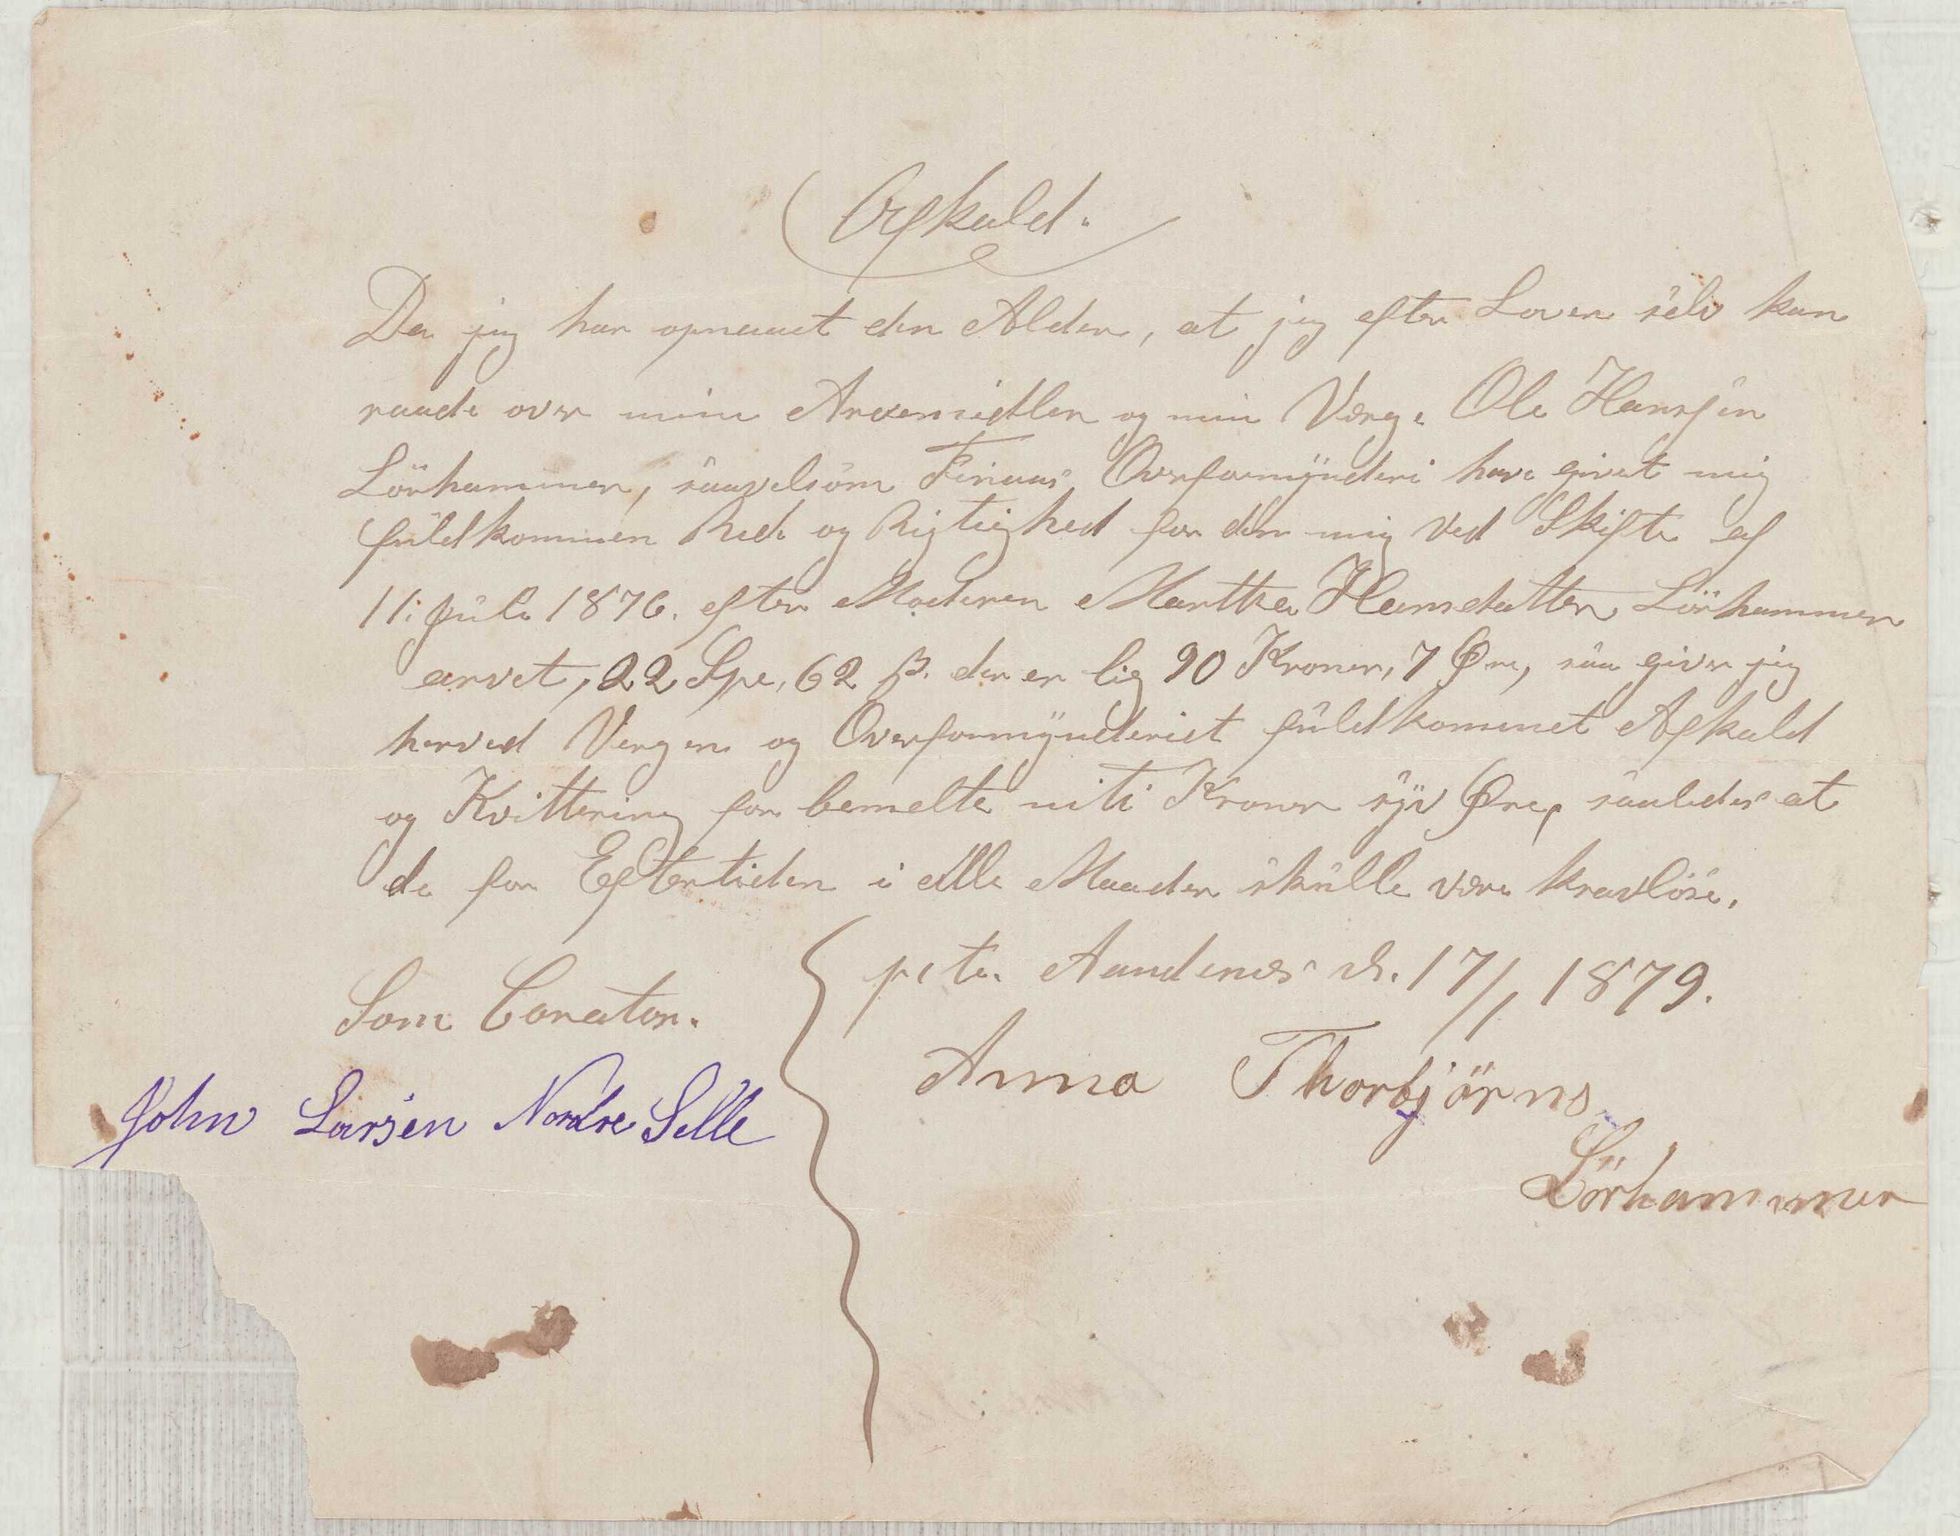 Afkald.
Da jeg har opnaaet den Alder, at jeg efter Loven selv kan
raade over mine Arvemidler og min Værge Ole Hansen
Lörhammer, saavelsom Finaas Overformynderi have givet mig
fuldkommen Rede og Rigtighed for den mig ved Skifte af
11: Juli 1876. efter Moderen Martha Hansdatter Lörhammer
arvet, 22 Spe, 62 β. der er lig 90 Kroner, 7 Øre, saa giver jeg
herved Vergen og Overformynderiet fuldkommet Afkald
og Kvittering for bemelte niti Kroner syv Øre, saaledes at
de for Eftertiden i alle Maader skulle være kravlöse.
p. t. Aandenes d. 17/1 1879.
Som Corator.
John Larsen Nordre Selle
Anna Thorbjörns
Lörhammer